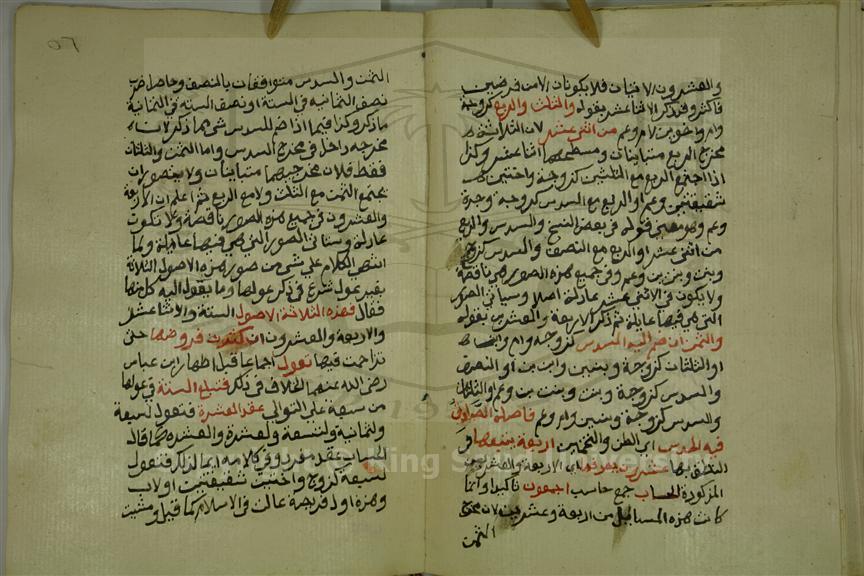 والعشرون الاثنان فلا يكونان الا من فرضين
فاكثر وقد ذكر الاثنا عشر بقوله والثلث والربع كزوجة
وام واخوين لام وعم من اثني عشر لان الثلاثة
مخرج الربع متباينان ومسطحهما اثنا عشر وكذا
اذا اجتمع الربع مع الثلثين كزوجة واختين
شقيقتين وعم او الربع مع السدس كزوجة وجدة
وعم وهو معنى قوله في بعض النسخ والسدس والربع
من اثني عشر او الربع مع النصف والسدس كزوج
وبنت وبنت ابن وعم وفي جميع هذه الصور هي ناقصة
ولا يكون في الاثني عشر عادلة اصلا وسياتي الصور
التي هي فيها عايلة ثم ذكر الاربعة والعشرين بقوله
والثمن ان ضم اليه السدس كزوجة وام وابن
او الثلثان كزوجة وبنتين وابن ابن او النصف
والسدس كزوجة وبنت وبنت ابن وعم او الثلثان
والسدس كزوجة وبنتين وام وعم فاصله الصادق
فيه الحدس اي الظن والتخمين اربعة يتبعها
عشرون يعرفها اي الاربعة والعشرين
المذكورة الحساب جمع حاسب اجمعون تأكيد وانما
كانت هذه المسايل من اربعة وعشرين لان مخرج
الثمن
الثمن والسدس متوافقان بالنصف وحاصل ضرب
نصف الثمانية في الستة او نصف الستة في الثمانية
ما ذكر وكذا فيما اذا ضم للسدس شي مما ذكر لان
مخرجه داخل في مخرج السدس واما الثمن والثلثان
فقط فلان مخرجيهما متباينان ولا يتصور ان
يجتمع الثمن مع الثلث ولا مع الربع ثم اعلم ان الاربعة
والعشرون في جميع هذه الصور ناقصة ولا تكون
عادلة وستاتي الصور التي هي فيها عايلة ولما
انتهى الكلام على شي من صور هذه الاصول الثلاثة
بغير عول شرع في ذكر عولها وما يعول اليه كل منها
فقال فهذه الثلاثة الاصول الستة والاثنا عشر
والاربعة والعشرون ان كثرت فروضها حتى
تزاحمت فيها تعول اجماعا قبل اظهار ابن عباس
رضى الله عنهما الخلاف في ذكر فتبلغ الستة في عولها
من سبعة على التوالي عقد العشرة فتعول لسبعة
ولثمانية ولتسعة ولعشرة والعشرة كما قال
الحساب عقد مفرد وفي كلامه ايما لذلك فتعول
لسبعة كزوج واختين شقيقتين او لاب
وهذه اول فريضة عالت في الاسلام كما قيل ومشيت